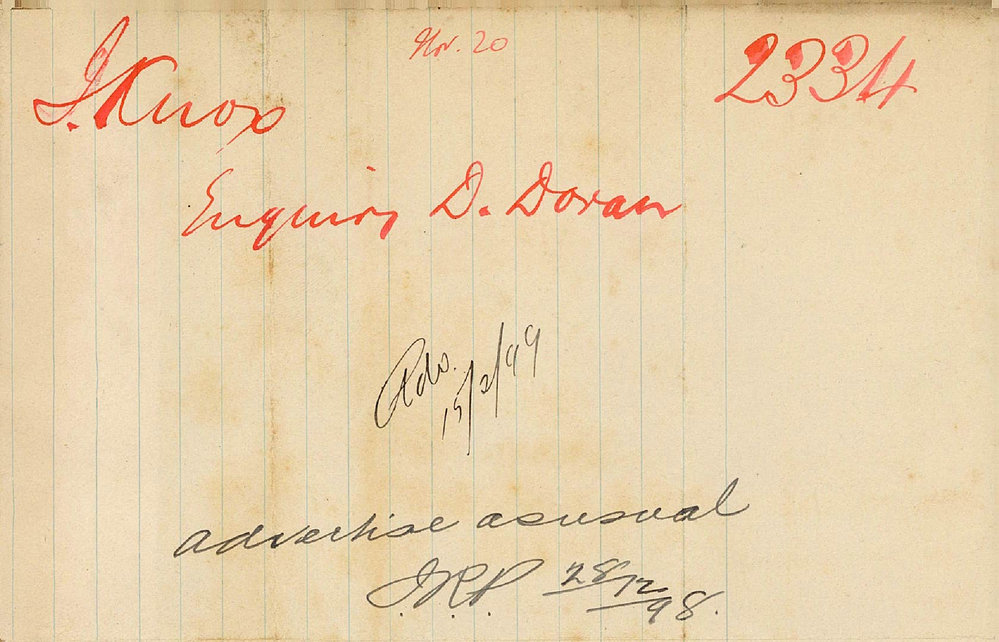 Nov. 20
2334
J. Knox
Enquiry D. Doran
Adv.
15/2/99
advertise as usual
J.R.P. 28/12/98.